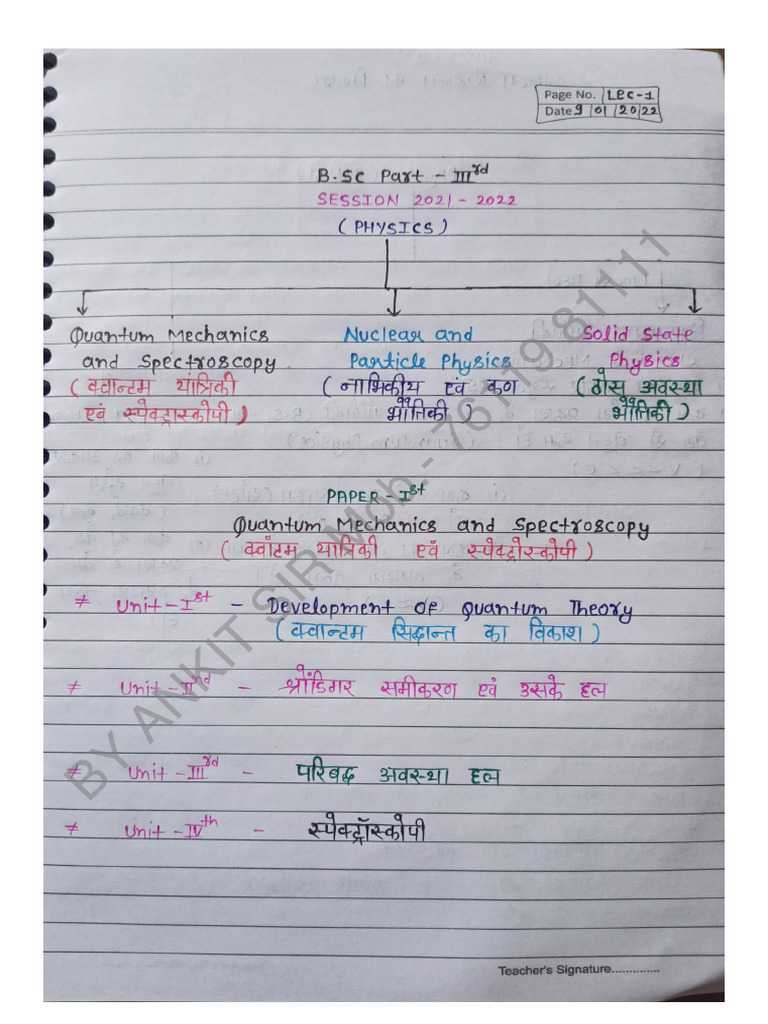 Page No. LEC-1
Date 9 01 2022
B.Sc Part - IIIrd
SESSION 2021 - 2022
( PHYSICS )
Quantum Mechanics Nuclear and Solid State
and Spectroscopy Particle Physics Physics
( क्वान्टम यांत्रिकी ( नाभिकीय एवं कण ( ठोस अवस्था
एवं स्पेक्ट्रास्कोपी ) भौतिकी ) भौतिकी )
PAPER - Ist
Quantum Mechanics and Spectroscopy
( क्वांटम यांत्रिकी एवं स्पेक्ट्रोस्कोपी )
≠ Unit - Ist - Development OF Quantum Theory
( क्वान्टम सिद्धान्त का विकाश )
≠ Unit - IInd - श्रोडिंगर समीकरण एवं उसके हल
≠ Unit - IIIrd - परिबद्ध अवस्था हल
≠ Unit - IVth - स्पेक्ट्रॉस्कोपी
Teacher's Signature..............
BY ANKIT SIR Mob.- 7611981111